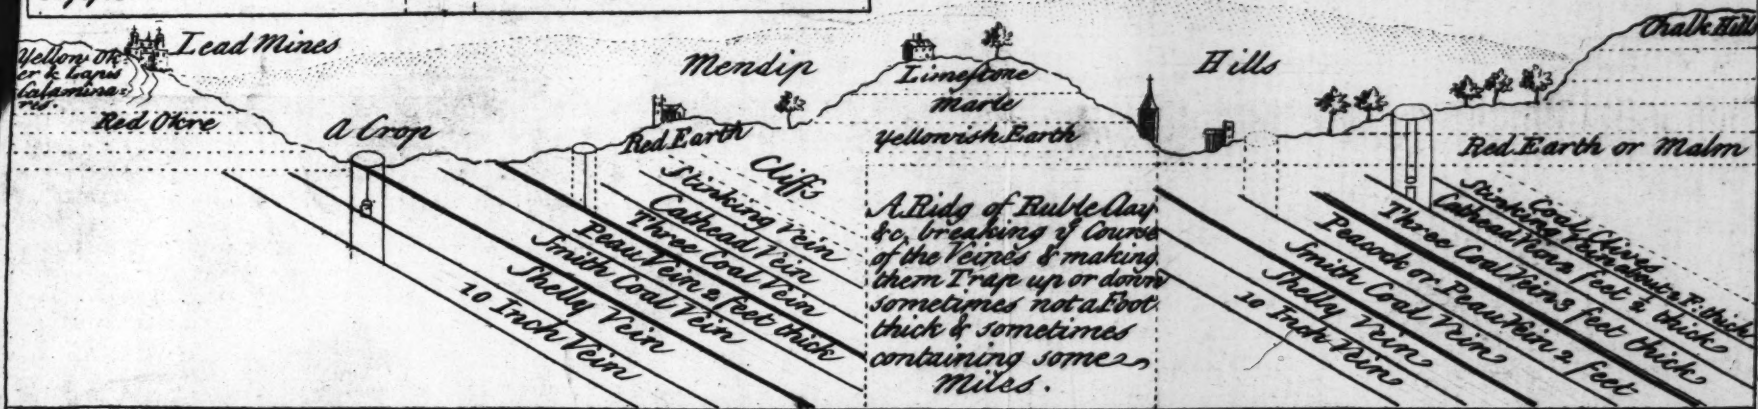 Lead Mines
Yellow Ok-
er & Lapis
Calamina=
ris.
Red Okre
A Crop
Mendip
Hills
Limestone
Marle
Yellowish Earth
Red Earth
Cliffs
Stinking Vein
Cathead Vein
Three Coal Vein
Peau Vein 2 feet thick
Smith Coal Vein
Shelly Vein
10 Inch Vein
A Ridg of Ruble Clay
&c, breaking yͤ Course
of the Veines & making
them Trap up or down
sometimes not a Foot
thick & sometimes
containing some
Miles.
Chalk Hills
Red Earth or Malm
Coal Clives
Stinking Vein about 2 F. thick
Cathead Vein 2 feet ½ thick
Three Coal Vein 3 feet thick
Peacock or Peau Vein 2 feet
Smith Coal Vein
Shelly Vein
10 Inch Vein